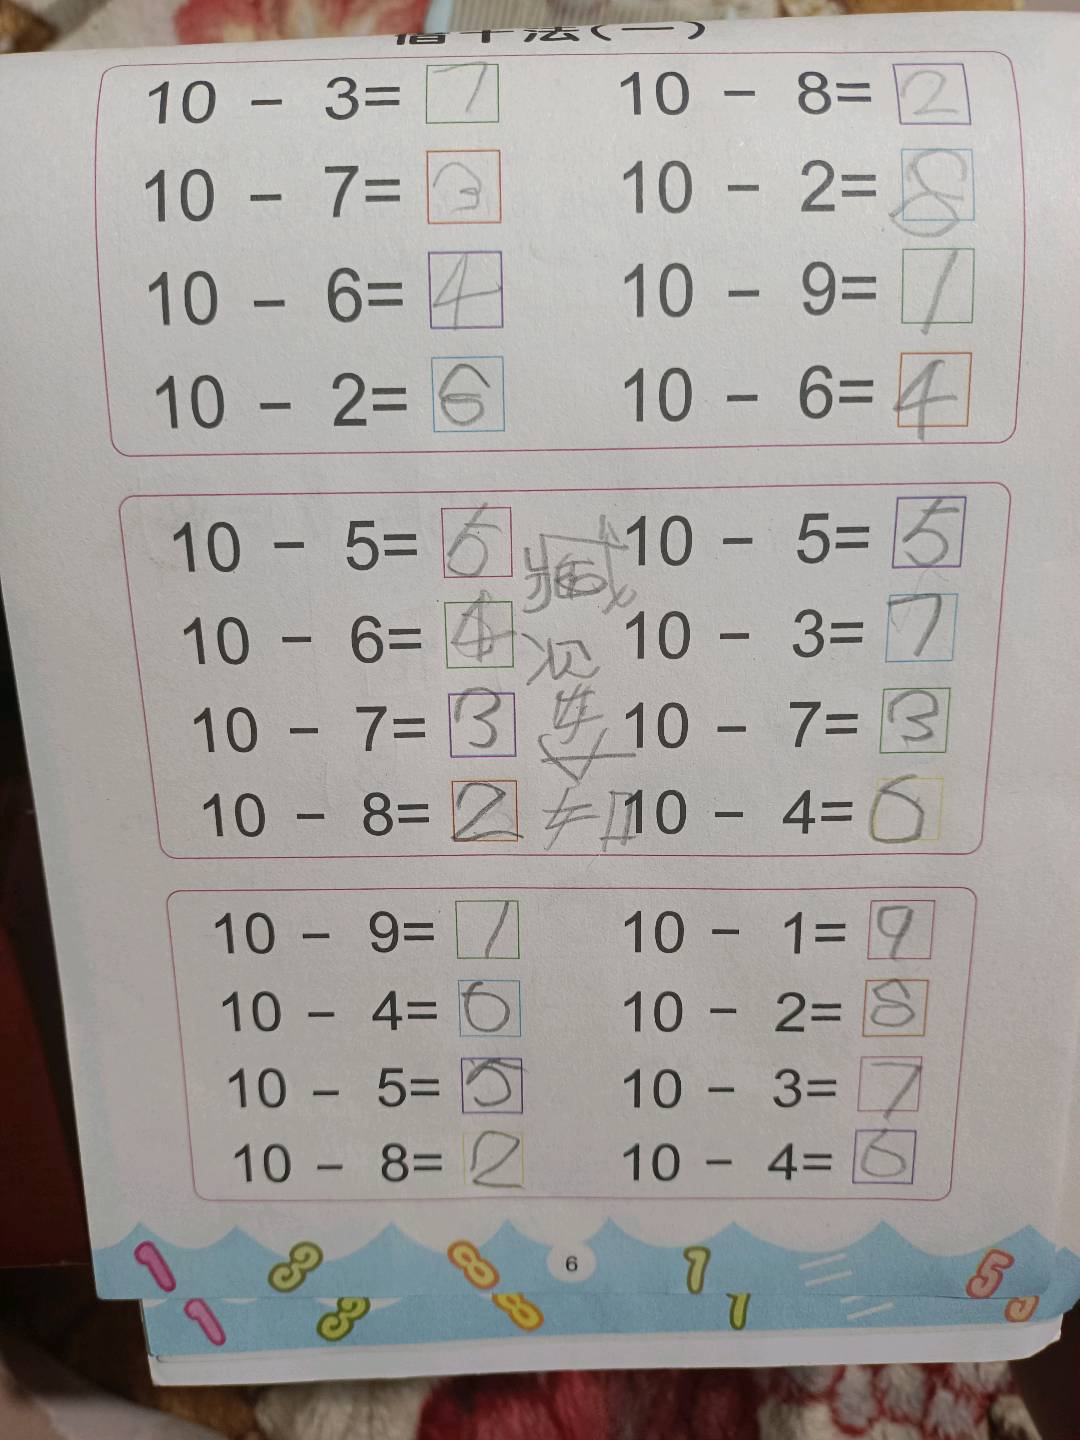 借十法(一)
10 - 3= 7 10 - 8= 2
10 - 7= 3 10 - 2= 8
10 - 6= 4 10 - 9= 1
10 - 2= 8 10 - 6= 4
10 - 5= 5 10 - 5= 5
10 - 6= 4 10 - 3= 7
10 - 7= 3 10 - 7= 3
10 - 8= 2 10 - 4= 6
10 - 9= 1 10 - 1= 9
10 - 4= 6 10 - 2= 8
10 - 5= 5 10 - 3= 7
10 - 8= 2 10 - 4= 6
1 3 8 6 1 5
1 3 8 1 5